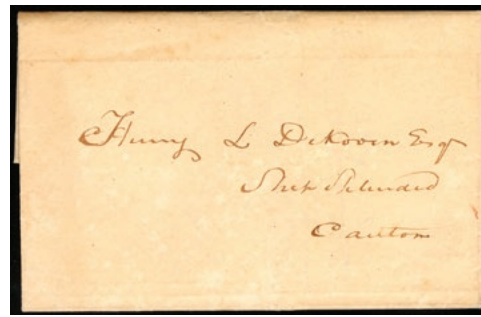 Henry L DeKoven Esq
Ship Splendid
Canton